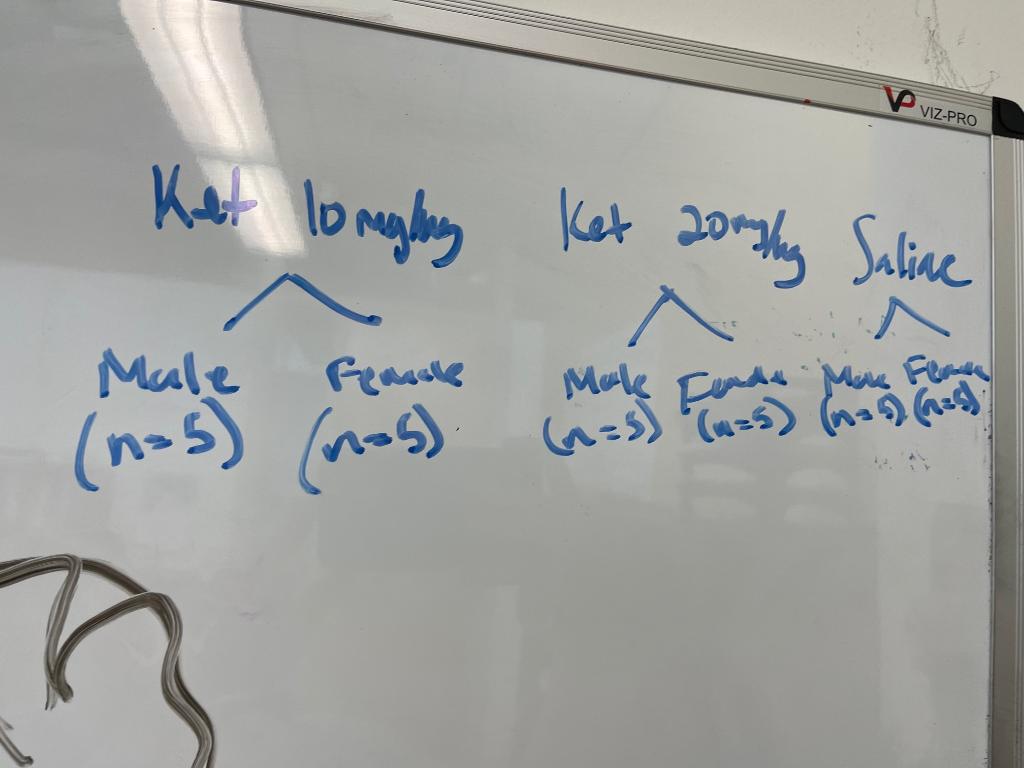 VP VIZ-PRO
Ket 10mg/kg
Ket 20mg/kg
Saline
Male Female
(n=5) (n=5)
Male Female
(n=5) (n=5)
Male Female
(n=5) (n=5)